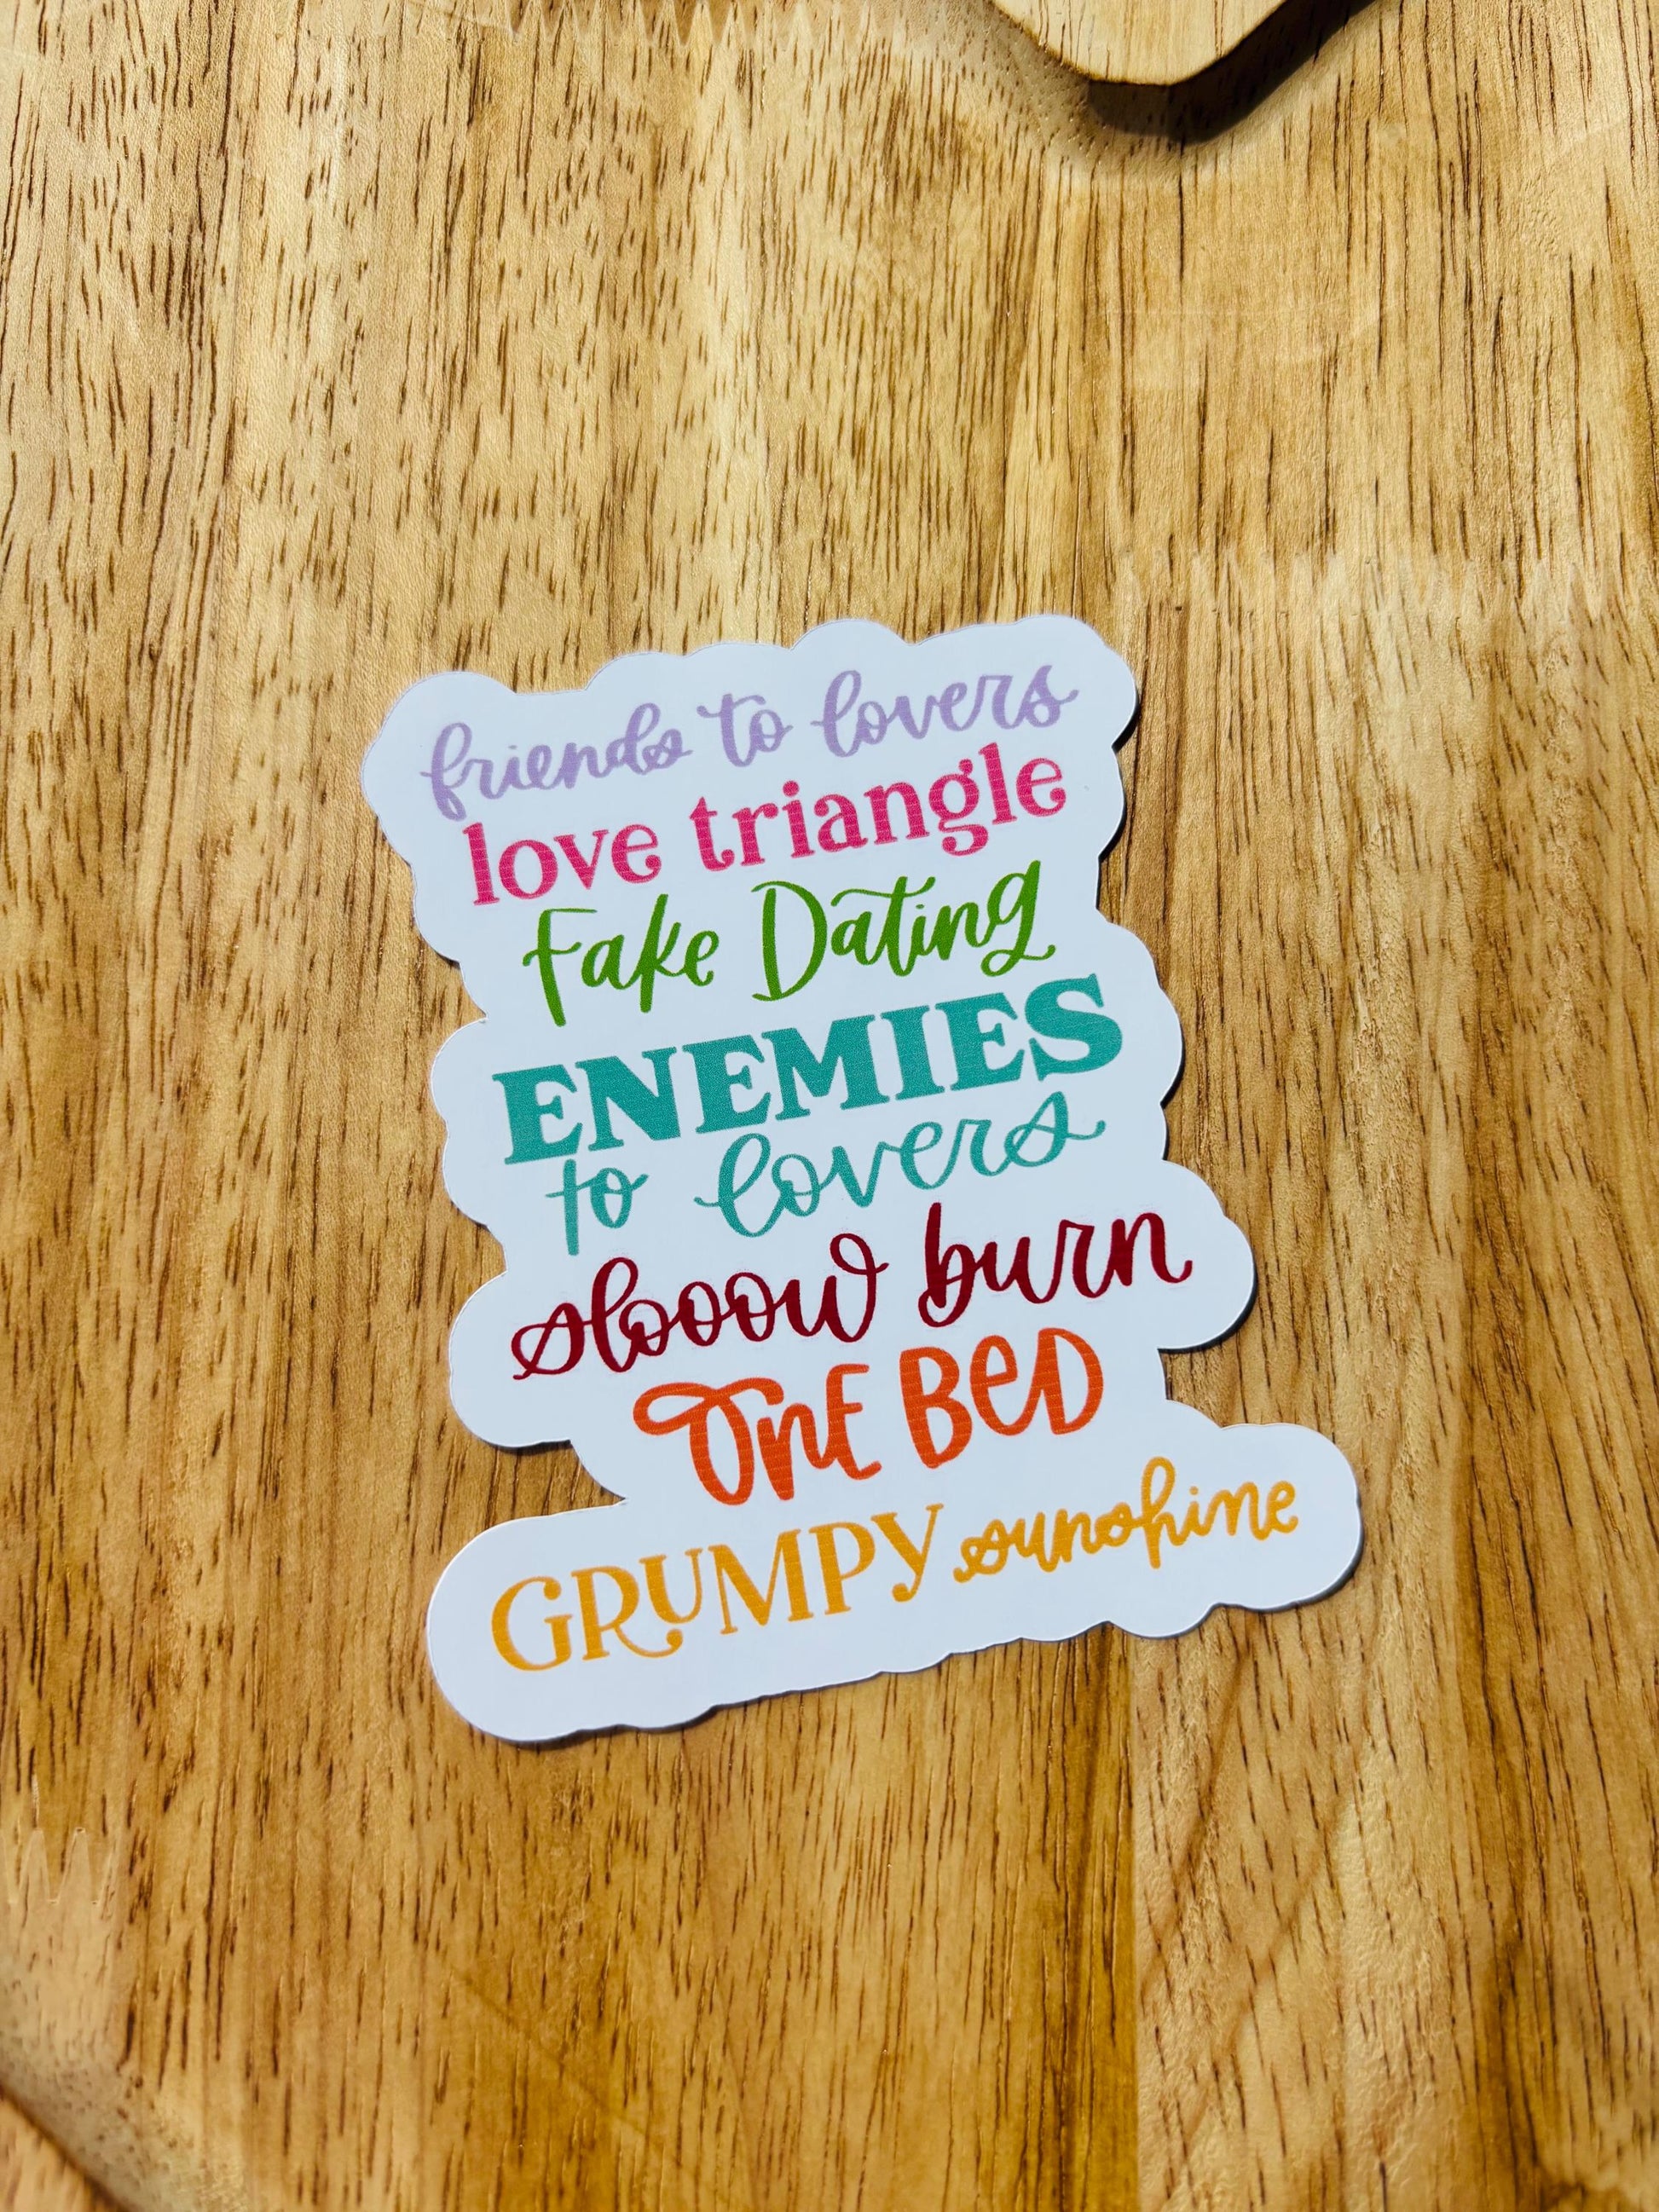 friends to lovers
love triangle
Fake Dating
ENEMIES
to lovers
slooow burn
OnE BeD
GRUMPY sunshine